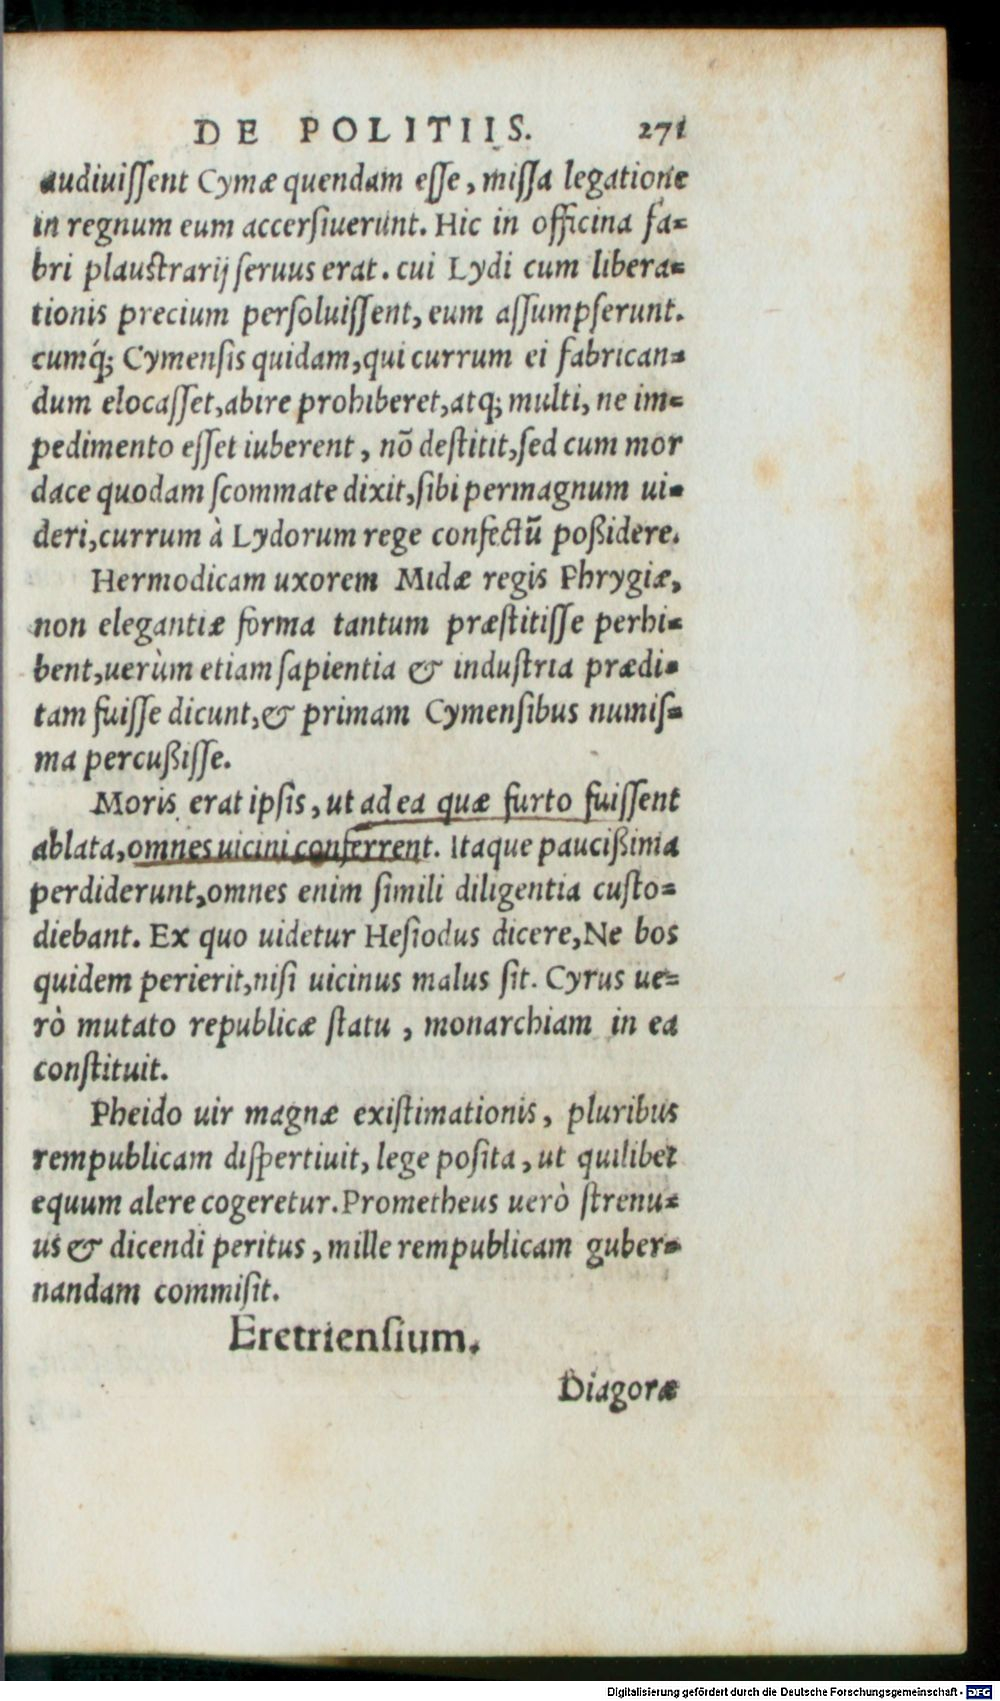 DE POLITIIS. 271
audiuiſſent Cymæ quendam eſſe, miſſa legatione
in regnum eum accerſiuerunt. Hic in officina fa=
bri plauſtrarij ſeruus erat. cui Lydi cum libera=
tionis precium perſoluiſſent, eum aſſumpſerunt.
cumq́; Cymenſis quidam, qui currum ei fabrican=
dum elocaſſet, abire prohiberet, atq; multi, ne im=
pedimento eſſet iuberent, nō deſtitit, ſed cum mor
dace quodam ſcommate dixit, ſibi permagnum ui=
deri, currum à Lydorum rege confectū poßidere.
Hermodicam uxorem Midæ regis Phrygiæ,
non elegantiæ forma tantum præſtitiſſe perhi=
bent, uerùm etiam ſapientia & induſtria prædi=
tam fuiſſe dicunt, & primam Cymenſibus numiſ=
ma percußiſſe.
Moris erat ipſis, ut ad ea quæ furto fuiſſent
ablata, omnes uicini conferrent. Itaque paucißima
perdiderunt, omnes enim ſimili diligentia cuſto=
diebant. Ex quo uidetur Heſiodus dicere, Ne bos
quidem perierit, niſi uicinus malus ſit. Cyrus ue=
rò mutato republicæ ſtatu, monarchiam in ea
conſtituit.
Pheido uir magnæ exiſtimationis, pluribus
rempublicam diſpertiuit, lege poſita, ut quilibet
equum alere cogeretur. Prometheus uerò ſtrenu=
us & dicendi peritus, mille rempublicam guber=
nandam commiſit.
Eretrienſium.
Diagoræ
Digitalisierung gefördert durch die Deutsche Forschungsgemeinschaft - DFG